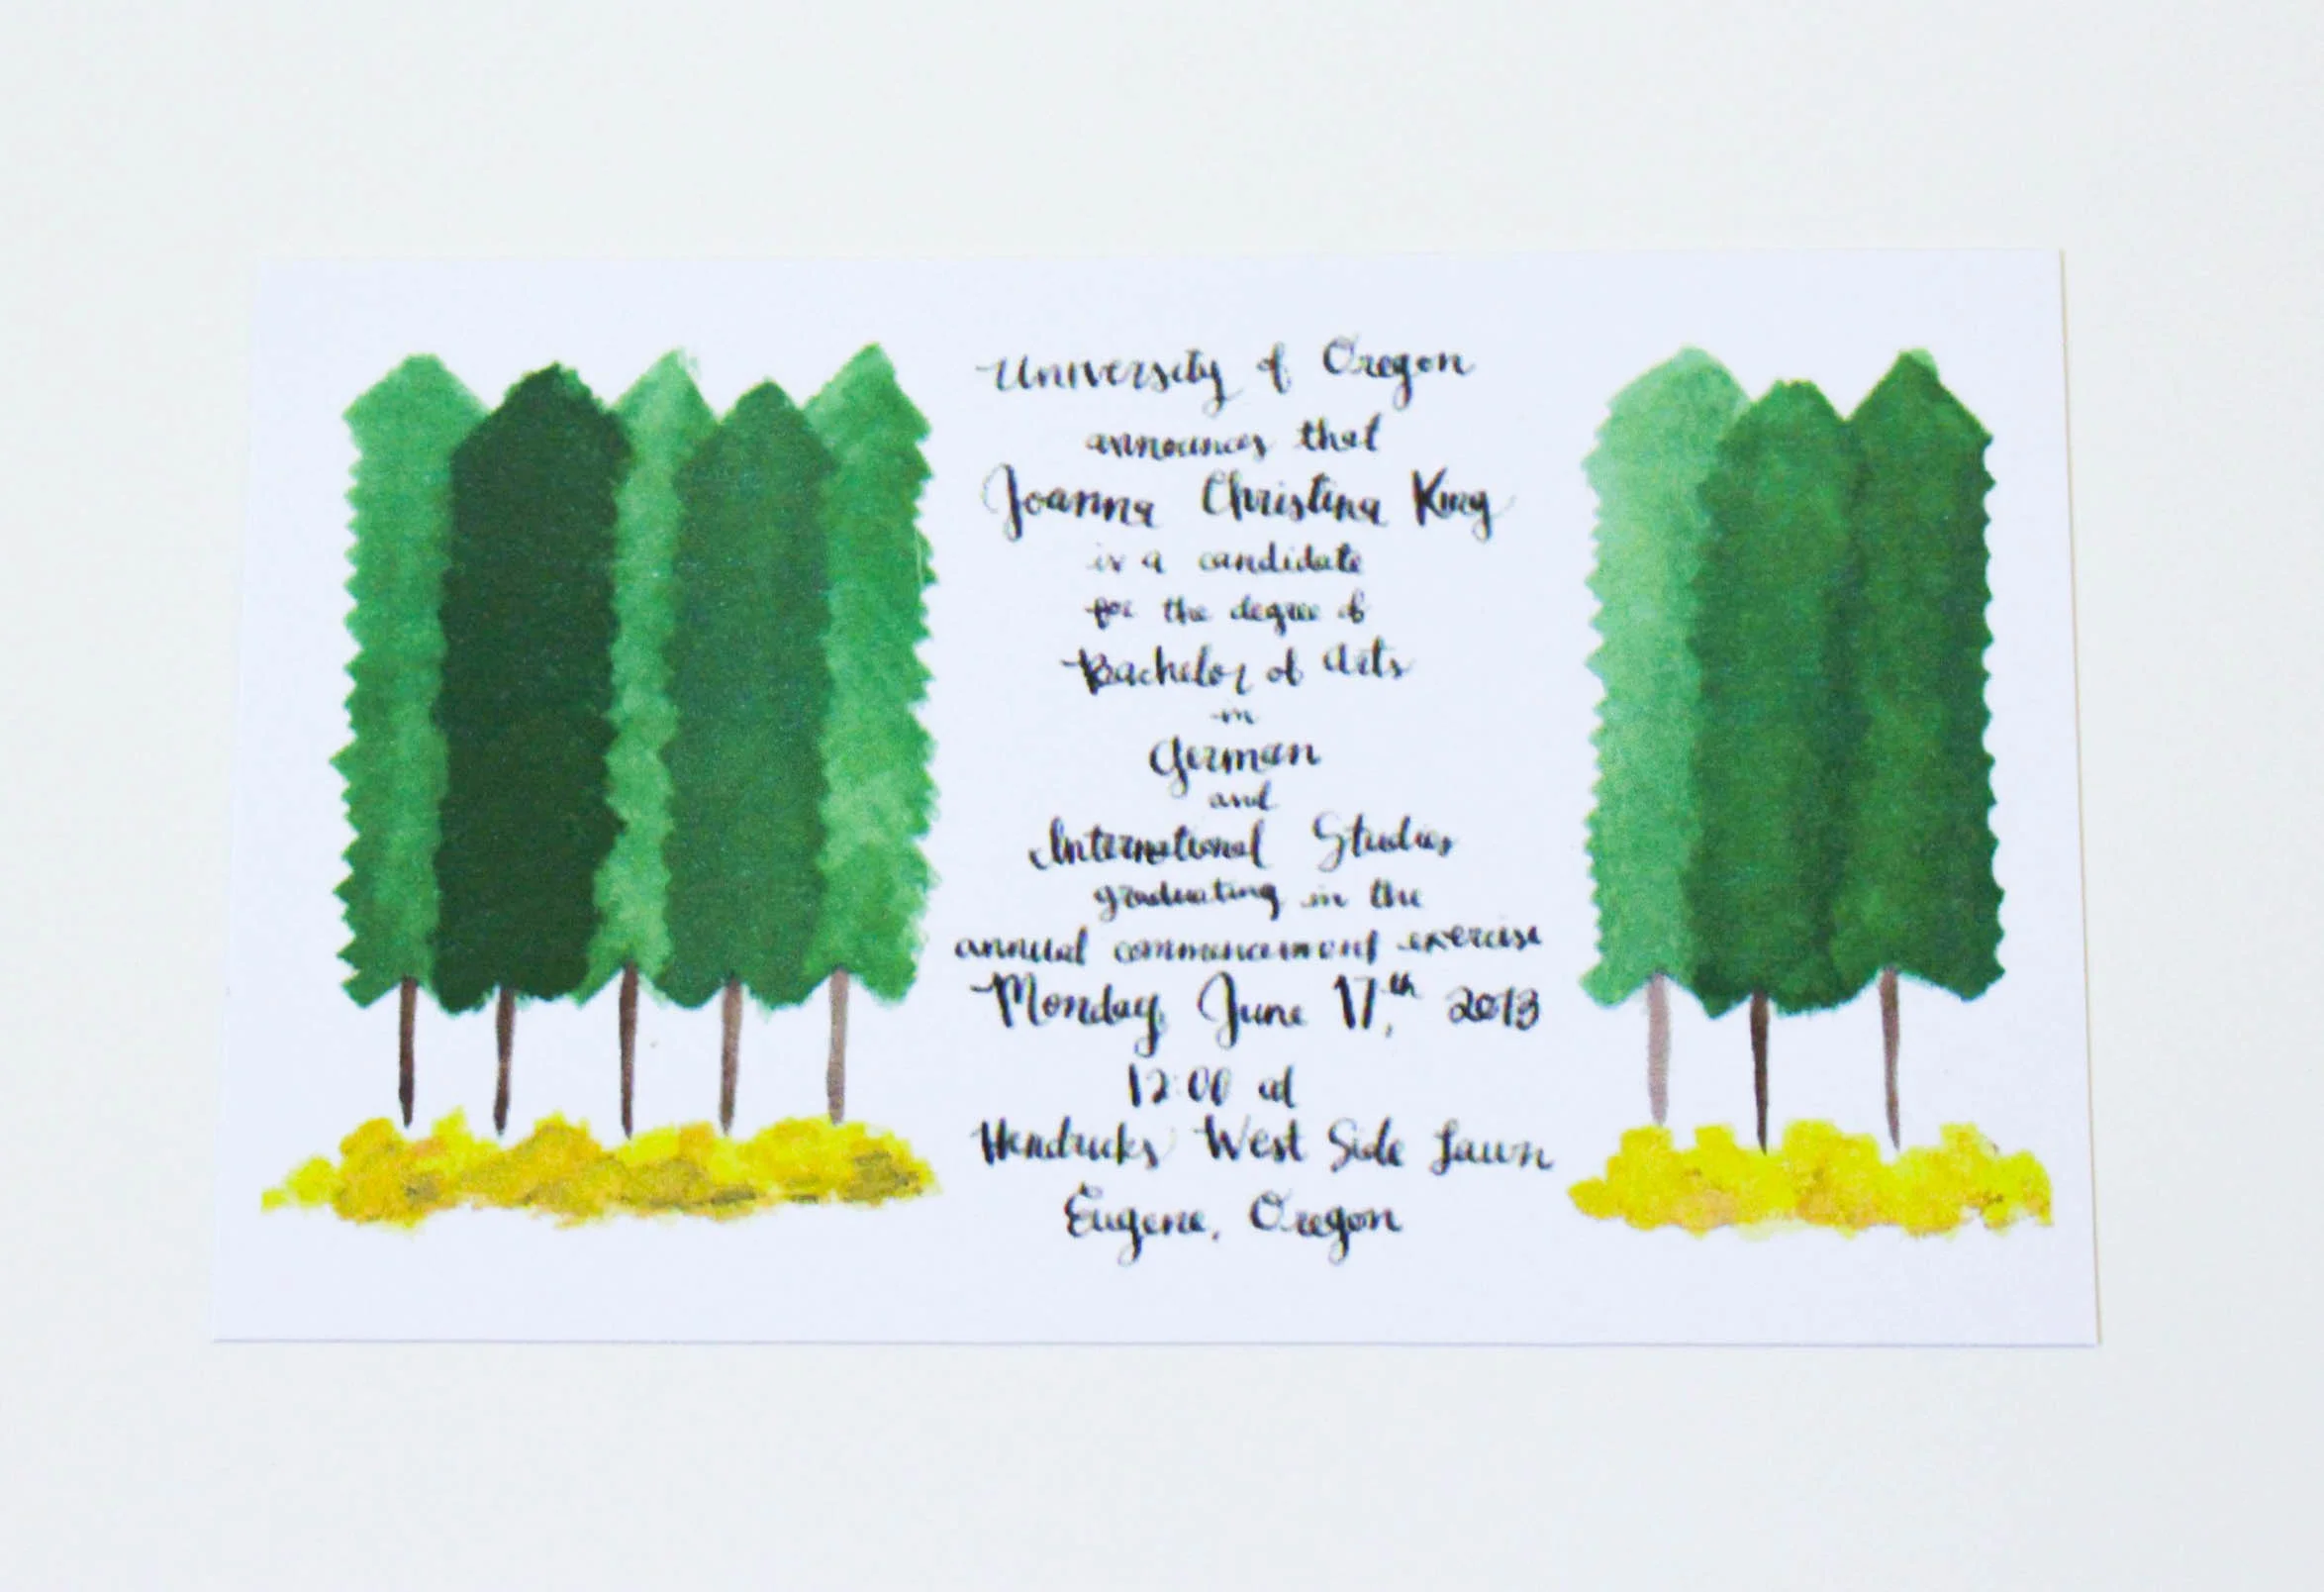 University of Oregon
announces that
Joanna Christina King
is a candidate
for the degree of
Bachelor of Arts
in
German
and
International Studies
graduating in the
annual commencement exercise
Monday, June 17,th 2013
12:00 at
Hendricks West Side Lawn
Eugene, Oregon